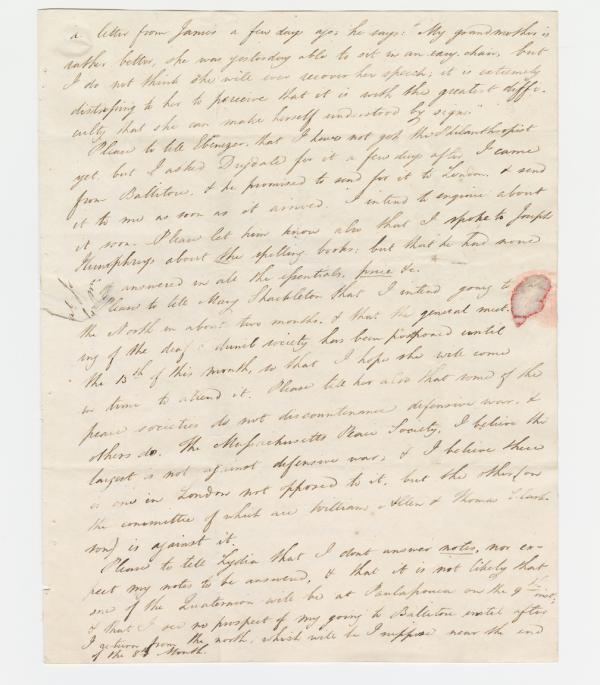 a letter from James a few days ago; he says: "My grandmother is
rather better, she was yesterday able to sit in an easy chair, but
I do not think she will ever recover her speech; it is extremely
distressing to her to perceive that it is with the greatest diffi-
culty that she can make herself understood by signs."
Please to tell Ebenezer, that I have not got the Philanthropist
yet, but I asked Dugdale for it a few days after I came
from Ballitore, & he promised to send for it to London, & send
it to me as soon as it arrived. I intend to enquire about
it soon. Please let him know also that I spoke to Joseph
Humphreys about the spelling books; but that he had none
answered in all the essentials, price &c.
Please to tell Mary Shackleton that I intend going to
the North in about two months, & that the general meet-
ing of the deaf & dumb society has been postponed until
the 15th of this month, so that I hope she will come
in time to attend it. Please tell her also that some of the
peace societies do not discountenance defensive war, &
others do. The Massachusetts Peace Society, I believe the
largest is not against defensive war, & I believe there
is one in London not opposed to it, but the other (on
the committee of which are William Allen & Thomas Clark-
son) is against it.
Please to tell Lydia that I dont answer notes, nor ex-
pect my notes to be answered, & that it is not likely that
one of the Quaternion will be at on the 9th inst,
& that I see no prospect of my going to Ballitore until after
I return from the north, which will be I suppose near the end
of the 8th Month.